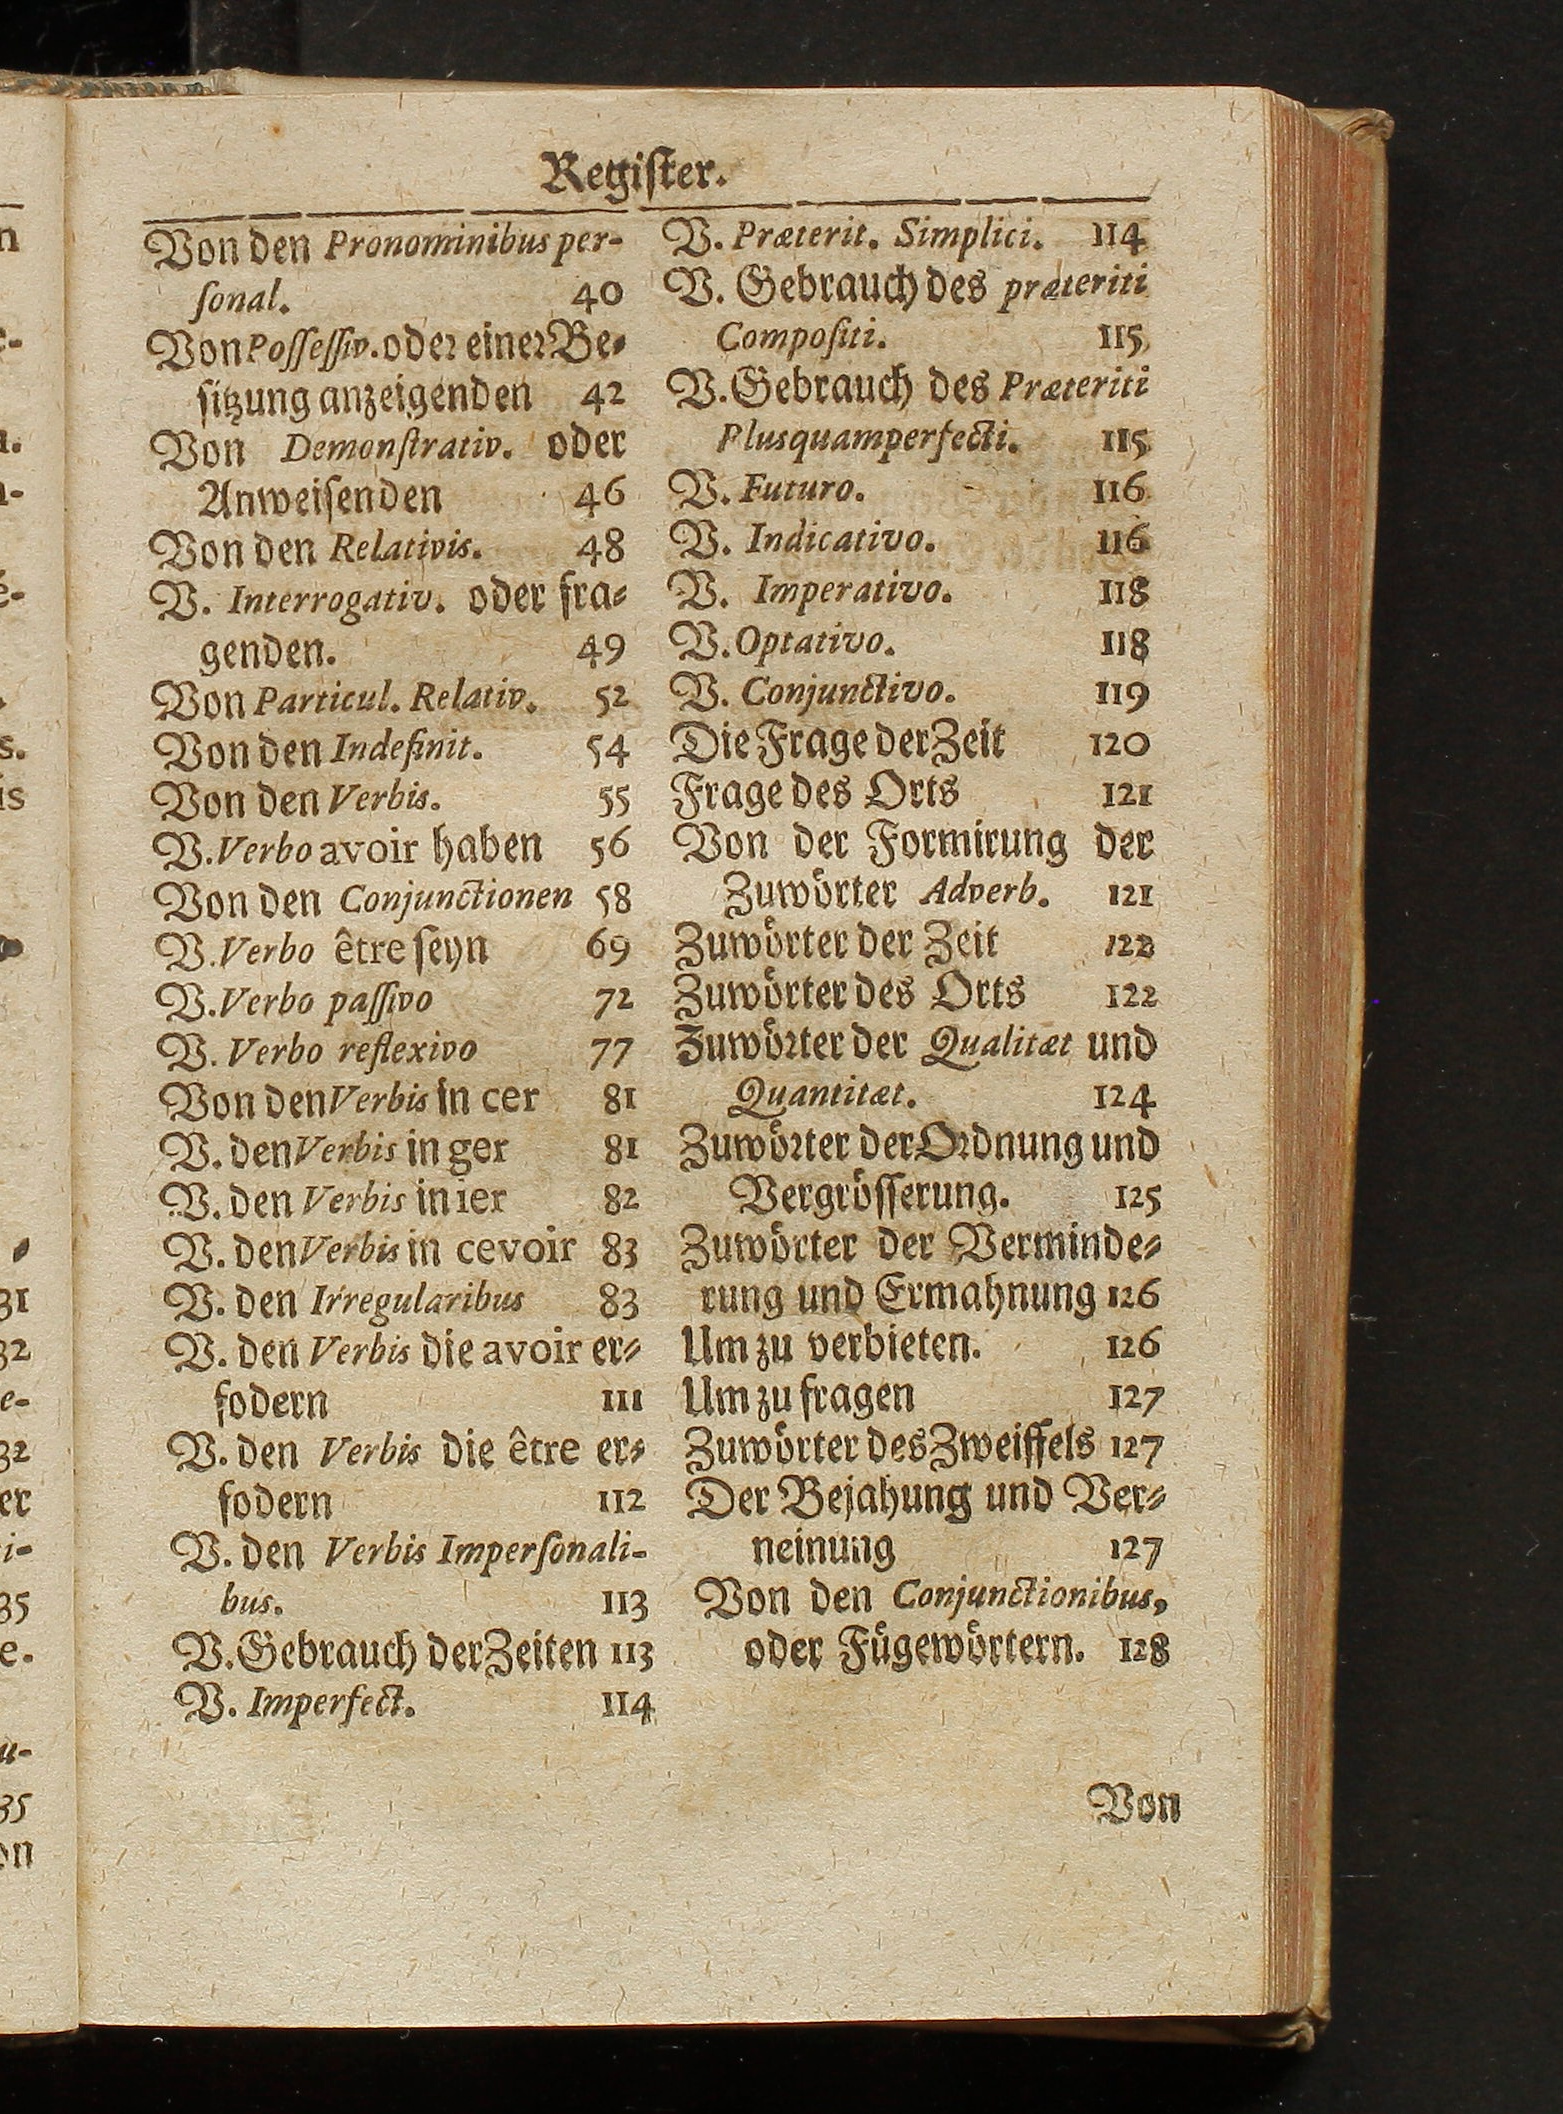 Regiſter.
Von den Pronominibus per-
ſonal. 40
Von Poſſeſſiv. oder einer Be-
ſitzung anzeigenden 42
Von Demonſtrativ. oder
Anweiſenden 46
Von den Relativis. 48
V. Interrogativ. oder fra-
genden. 49
Von Particul. Relativ. 52
Von den Indefinit. 54
Von den Verbis. 55
V. Verbo avoir haben 56
Von den Conjunctionen 58
V. Verbo être ſeyn 69
V. Verbo paſſivo 72
V. Verbo reflexivo 77
Von den Verbis in cer 81
V. den Verbis in ger 81
V. den Verbis in ier 82
V. den Verbis in cevoir 83
V. den Irregularibus 83
V. den Verbis die avoir er-
fodern 111
V. den Verbis die être er-
fodern 112
V. den Verbis Imperſonali-
bus. 113
V. Gebrauch der Zeiten 113
V. Imperfect. 114
V. Præterit. Simplici. 114
V. Gebrauch des præteriti
Compoſiti. 115
V. Gebrauch des Præteriti
Plusquamperfecti. 115
V. Futuro. 116
V. Indicativo. 116
V. Imperativo. 118
V. Optativo. 118
V. Conjunctivo. 119
Die Frage der Zeit 120
Frage des Orts 121
Von der Formirung der
Zuwörter Adverb. 121
Zuwörter der Zeit 122
Zuwörter des Orts 122
Zuwörter der Qualitæt und
Quantitæt. 124
Zuwörter der Ordnung und
Vergröſſerung. 125
Zuwörter der Verminde-
rung und Ermahnung 126
Um zu verbieten. 126
Um zu fragen 127
Zuwörter des Zweiffels 127
Der Bejahung und Ver-
neinung 127
Von den Conjunctionibus,
oder Fügewörtern. 128
Von